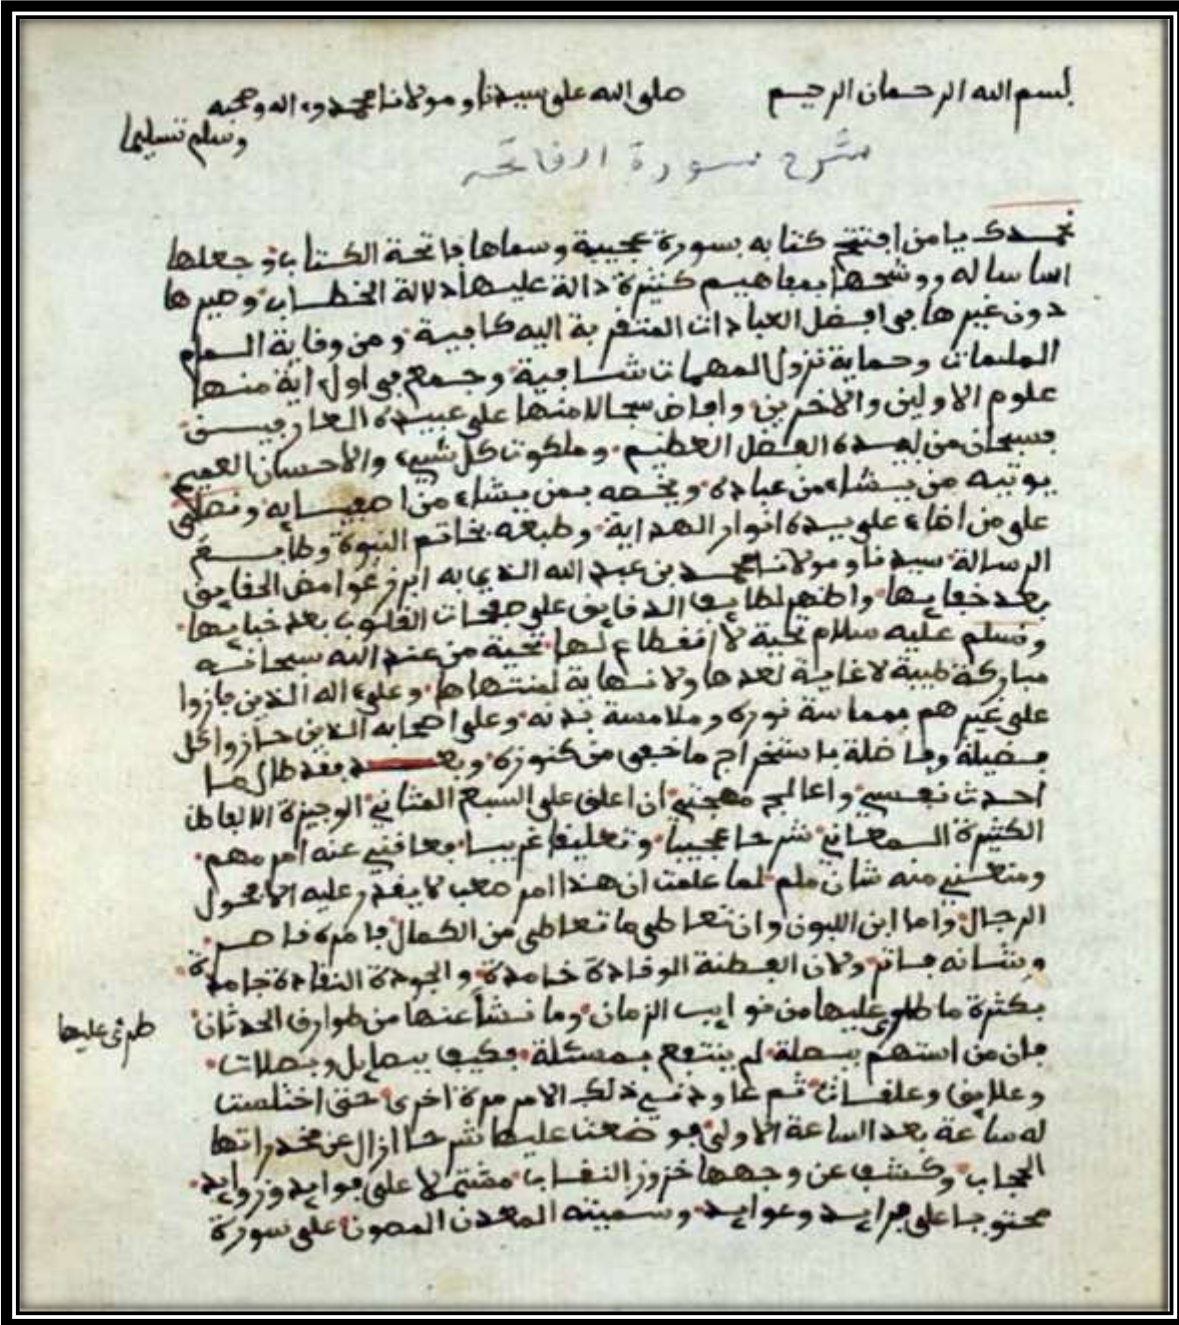 بسم الله الرحمان الرحيم صلى الله على سيدنا ومولانا محمد وءاله وصحبه
وسلم تسليما
شرح سورة الفاتحة
نحمدك يا من افتتح كتابه بسورة عجيبة وسماها فاتحة الكتاب وجعلها
اساسا له ووشحها بمفاهيم كثيرة دالة عليها دلالة الخطاب وصيرها
دون غيرها في افضل العبادات المتقربة اليه كافية ومن وقاية السمام
الملمات وحماية نزول المهمات شافية وجمع في اول ءاية منها
علوم الاولين والاخرين وافاض سجالا منها على عبيده العارفين
فسبحان من بيده الفضل العظيم وملكوت كل شيء والاحسان العميم
يوتيه من يشاء من عباده ويخصه بمن يشاء من اصفيايه ونصلي
على من اضاء على يده انوار الهداية وطبعه بخاتم النبوة وطابع
الرسالة سيدنا ومولانا محمد بن عبد الله الذي به ابرز غوامض الحقايق
بعد خفايها واظهر لطايف الدقايق على صفحات القلوب بعد خبايها
ونسلم عليه سلام تحية لا انقطاع لها تحية من عند الله سبحانه
مباركة طيبة لا غاية لعدها ولا نهاية لمنتهاها وعلى ءاله الذين فازوا
على غيرهم بمماسة نوره وملامسة بدنه وعلى اصحابه الذين حازوا كل
فضيلة وفاضلة باستخراج ما خفي من كنوزه وبعد فقد طال ما
احدث نفسي واعالج مهجتي ان اعلق على السبع المثاني الوجيزة الالفاظ
الكثيرة المعاني شرحا عجيبا وتعليقا غريبا فعاقني عنه امر مهم
ومنعني منه شان ملم لما علمت ان هذا امر صعب لا يقدر عليه الا فحول
الرجال واما ابن اللبون وان تعاطى ما تعاطى من الكمال فامره قاصر
وشانه فاتر ولان الفطنة الوقادة خامدة والجودة النقادة جامدة
بكثرة ما طرى عليها من نوايب الزمان وما نشأ عنها من طوارق الحدثان
طرئ عليها
فان من استهم ببصلة لم ينتفع بمسئلة فكيف ببصايل وبصلات
وعلايق وعلقات ثم عاودني ذلك الامر مرة اخرى حتى اختلست
له ساعة بعد الساعة الاولى فوضعت عليها شرحا ازال عن مخدراتها
الحجاب وكشف عن وجهها خزوز النقاب مشتملا على فوايد وزوايد
محتويا على فرايد وعوايد وسميته المعدن المصون على سورة